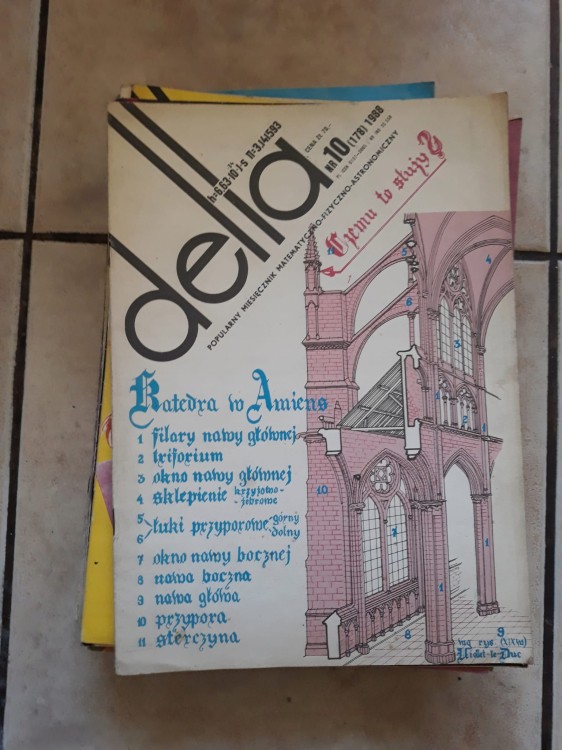 delta
h=6,63·10⁻³⁴ J·s π=3,141593
CENA ZŁ 70,-
NR 10 (178) 1988
POPULARNY MIESIĘCZNIK MATEMATYCZNO-FIZYCZNO-ASTRONOMICZNY
Czemu to służy?
Katedra w Amiens
1 filary nawy głównej
2 tryforium
3 okno nawy głównej
4 sklepienie krzyżowo-żebrowe
5 górny
łuki przyporowe
6 dolny
7 okno nawy bocznej
8 nawa boczna
9 nawa główa
10 przypora
11 sterczyna
wg rys. (XIXw)
Viollet-le-Duc